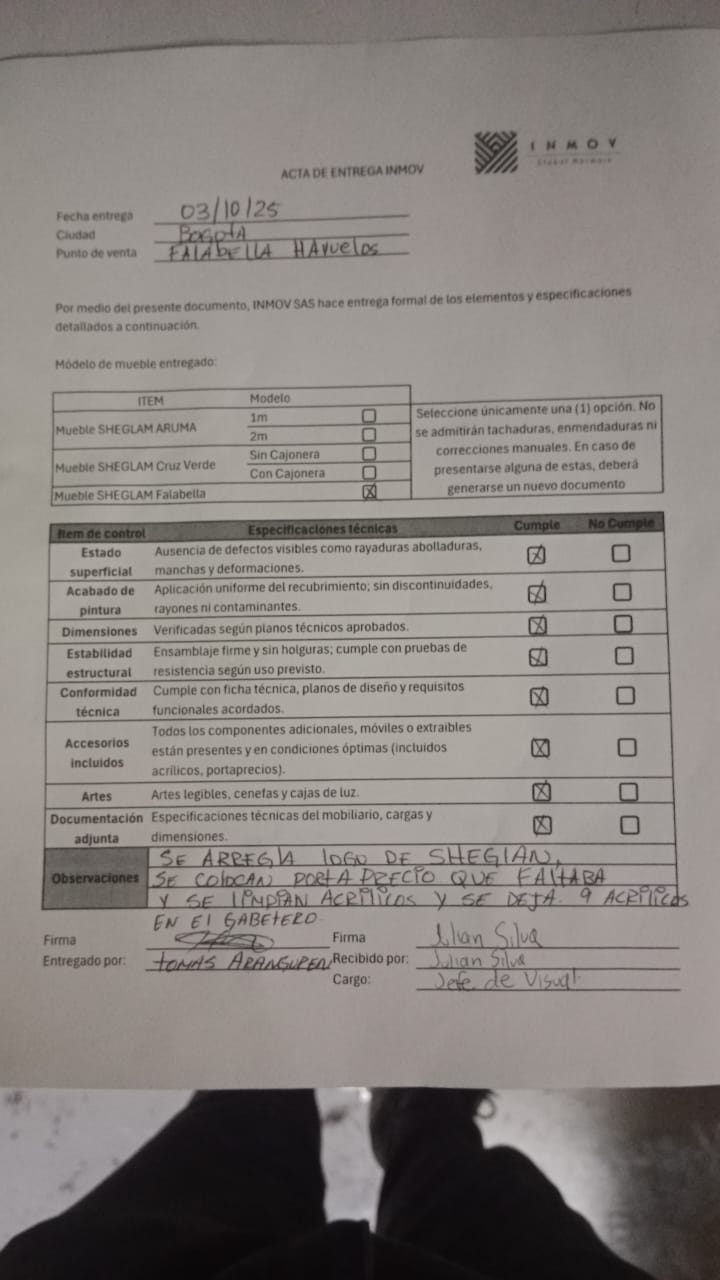 INMOV
Global Network
ACTA DE ENTREGA INMOV
Fecha entrega 03/10/25
Ciudad BOGOTA
Punto de venta FALABELLA HAYUELOS
Por medio del presente documento, INMOV SAS hace entrega formal de los elementos y especificaciones
detallados a continuación.
Módelo de mueble entregado:
ITEM Modelo
Mueble SHEGLAM ARUMA 1m ☐
2m ☐
Mueble SHEGLAM Cruz Verde Sin Cajonera ☐
Con Cajonera ☐
Mueble SHEGLAM Falabella ☒
Seleccione únicamente una (1) opción. No
se admitirán tachaduras, enmendaduras ni
correcciones manuales. En caso de
presentarse alguna de estas, deberá
generarse un nuevo documento
Item de control Especificaciones técnicas Cumple No Cumple
Estado superficial Ausencia de defectos visibles como rayaduras abolladuras, ☒ ☐
manchas y deformaciones.
Acabado de pintura Aplicación uniforme del recubrimiento; sin discontinuidades, ☒ ☐
rayones ni contaminantes.
Dimensiones Verificadas según planos técnicos aprobados. ☒ ☐
Estabilidad estructural Ensamblaje firme y sin holguras; cumple con pruebas de ☒ ☐
resistencia según uso previsto.
Conformidad técnica Cumple con ficha técnica, planos de diseño y requisitos ☒ ☐
funcionales acordados.
Accesorios incluidos Todos los componentes adicionales, móviles o extraibles ☒ ☐
están presentes y en condiciones óptimas (incluidos
acrílicos, portaprecios).
Artes Artes legibles, cenefas y cajas de luz. ☒ ☐
Documentación adjunta Especificaciones técnicas del mobiliario, cargas y ☒ ☐
dimensiones.
Observaciones SE ARREGLA LOGO DE SHEGLAN,
SE COLOCAN PORTA PRECIO QUE FALTABA
Y SE LIMPIAN ACRILICOS Y SE DEJA. 9 ACRILICOS
EN EL GABETERO
Firma
Entregado por: TOMAS ARANGUREN
Firma Julian Silva
Recibido por: Julian Silva
Cargo: Jefe de Visual